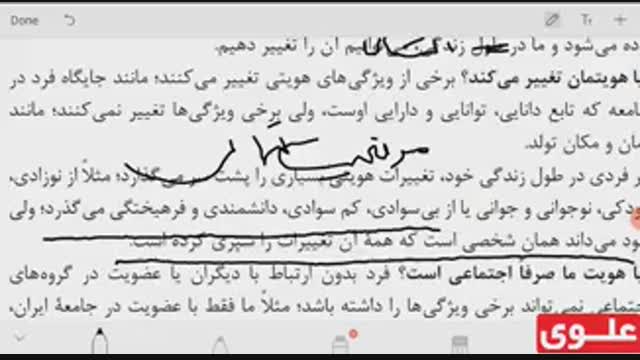 Done
ده می‌شود و ما در طول زندگی انیم آن را تغییر دهیم.
ا هویتمان تغییر می‌کند؟ برخی از ویژگی‌های هویتی تغییر می‌کنند؛ مانند جایگاه فرد در
امعه که تابع دانایی، توانایی و دارایی اوست، ولی برخی ویژگی‌ها تغییر نمی‌کنند؛ مانند
مان و مکان تولد.
ر فردی در طول زندگی خود، تغییرات هویتی بسیاری را پشت سر می‌گذارد؛ مثلاً از نوزادی،
ودکی، نوجوانی و جوانی یا از بی‌سوادی، کم سوادی، دانشمندی و فرهیختگی می‌گذرد؛ ولی
ود می‌داند همان شخصی است که همهٔ آن تغییرات را سپری کرده است.
ا هویت ما صرفاً اجتماعی است؟ فرد بدون ارتباط با دیگران یا عضویت در گروه‌های
جتماعی نمی‌تواند برخی ویژگی‌ها را داشته باشد؛ مثلاً ما فقط با عضویت در جامعهٔ ایران،
علوی